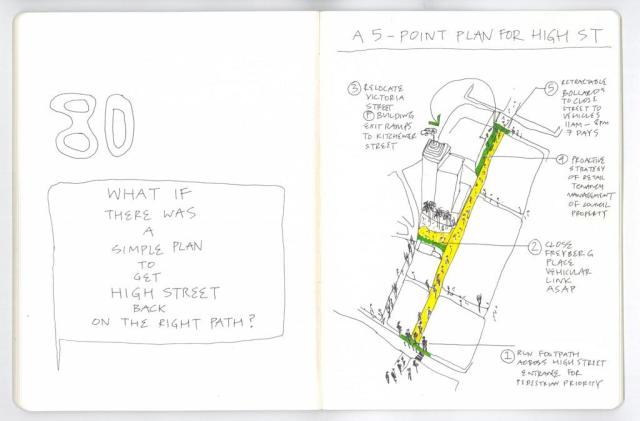 80
WHAT IF
THERE WAS
A
SIMPLE PLAN
TO
GET
HIGH STREET
BACK
ON THE RIGHT PATH?
A 5-POINT PLAN FOR HIGH ST
③ RELOCATE
VICTORIA
STREET
Ⓟ BUILDING
EXIT RAMPS
TO KITCHENER
STREET
⑤ RETRACTABLE
BOLLARDS
TO CLOSE
STREET TO
VEHICLES
11AM - 8PM
7 DAYS
④ PROACTIVE
STRATEGY
OF RETAIL
TENANCY
MANAGEMENT
OF COUNCIL
PROPERTY
② CLOSE
FREYBERG
PLACE
VEHICULAR
LINK
ASAP
① RUN FOOTPATH
ACROSS HIGH STREET
ENTRANCE FOR
PEDESTRIAN PRIORITY